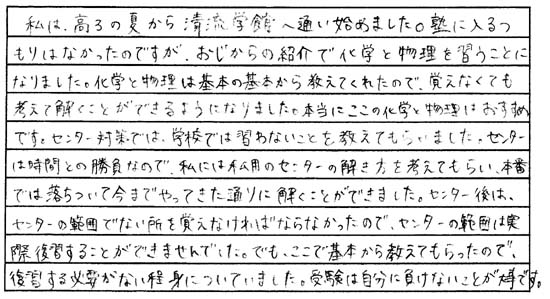 私は、高3の夏から清流学館へ通い始めました。塾に入るつ
もりはなかったのですが、おじからの紹介で化学と物理を習うことに
なりました。化学と物理は基本の基本から教えてくれたので、覚えなくても
考えて解くことができるようになりました。本当にここの化学と物理はおすすめ
です。センター対策では、学校では習わないことを教えてもらいました。センター
は時間との勝負なので、私には私用のセンターの解き方を考えてもらい、本番
では落ちついて今までやってきた通りに解くことができました。センター後は、
センターの範囲でない所を覚えなければならなかったので、センターの範囲は実
際復習することができませんでした。でも、ここで基本から教えてもらったので、
復習する必要がない程身についていました。受験は自分に負けないことが大事です。